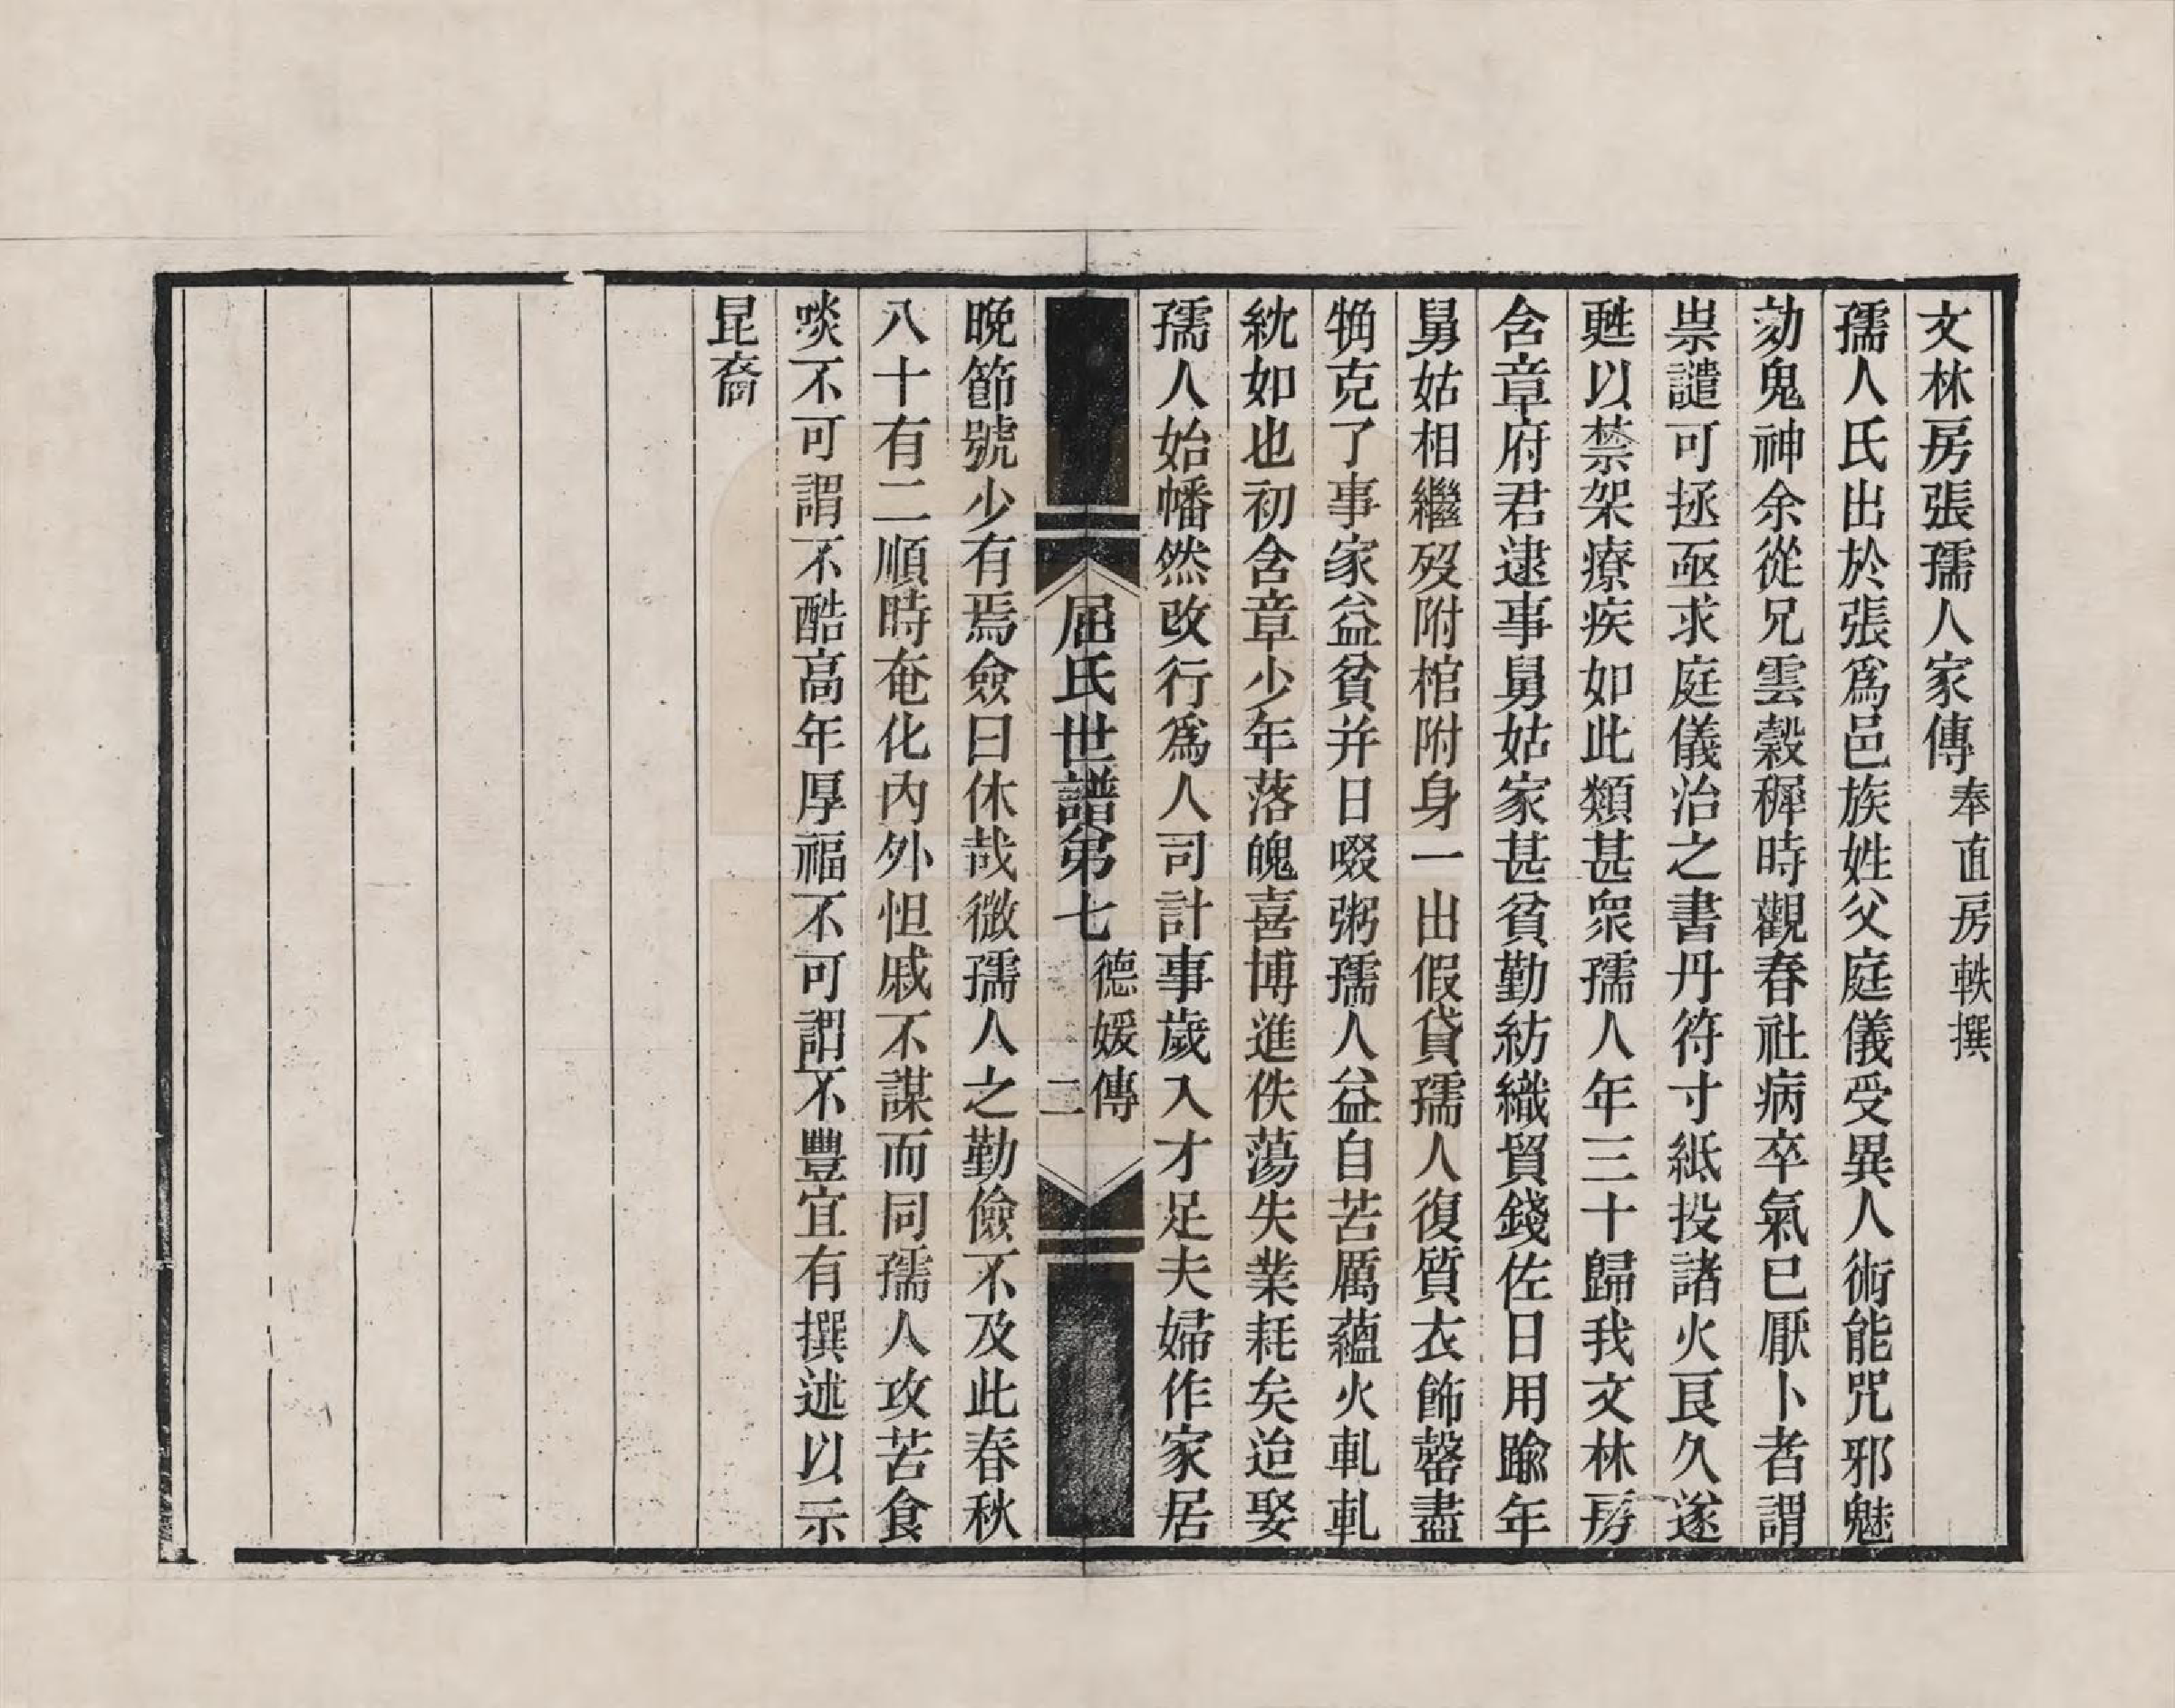 文林房張孺人家傳 奉直房軼撰
孺人氏出於張爲邑族姓父庭儀受異人術能咒邪魅
劾鬼神余從兄雲穀穉時觀春社病卒氣已厭卜者謂
祟譴可拯亟求庭儀治之書丹符寸紙投諸火良久遂
甦以禁架療疾如此類甚衆孺人年三十歸我文林房
含章府君逮事舅姑家甚貧勤紡織貿錢佐日用踰年
舅姑相繼歿附棺附身一出假貸孺人復質衣飾罄盡
觕克了事家益貧并日啜粥孺人益自苦厲蘊火軋軋
紞如也初含章少年落魄喜博進佚蕩失業耗矣迨娶
孺人始幡然改行爲人司計事歲入才足夫婦作家居
屈氏世譜弟七 德媛傳 二
晚節號少有焉僉曰休哉微孺人之勤儉不及此春秋
八十有二順時奄化內外怛戚不謀而同孺人攻苦食
啖不可謂不酷高年厚福不可謂不豐宜有撰述以示
昆裔